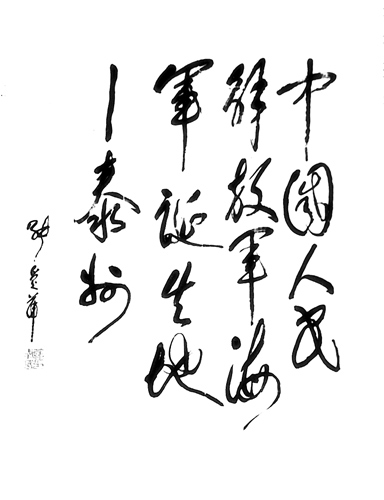 中國人民
解放軍海
軍誕生地
—泰州
张爱萍